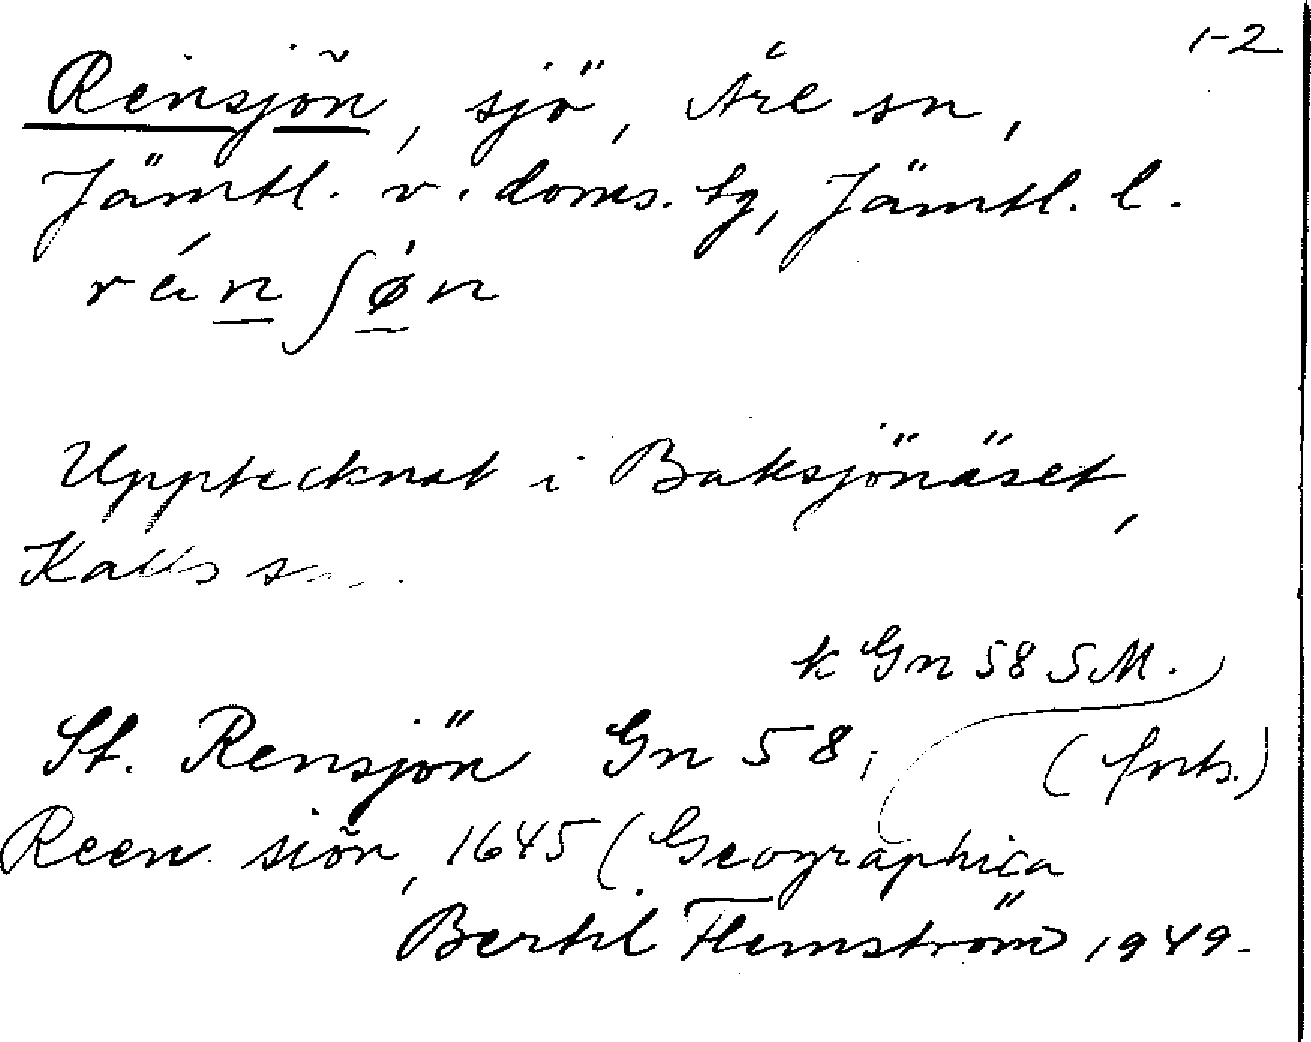 1-2
Rensjön, sjö, Åre sn,
Jämtl. v. doms. tg, Jämtl. l.
rén ʃøn
Upptecknat i Baksjönäset,
Kalls
k Gn 58 SM.
St. Rensjön Gn 58; (forts.)
Reen siön, 1645 (Geographica
Bertil Flemström 1949.